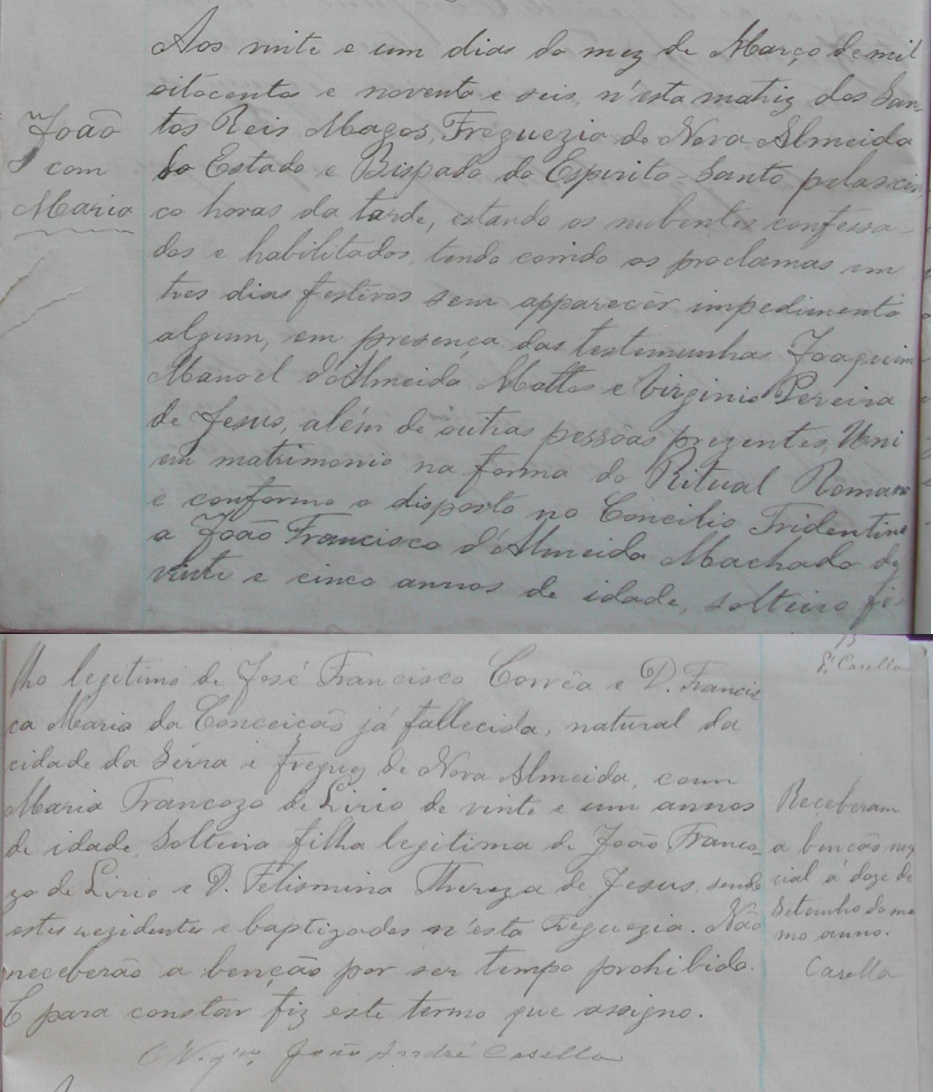 João
com
Maria
Aos vinte e um dias do mez de Março de mil
oitocentos e noventa e seis, n'esta matriz dos San-
tos Reis Magos, Freguezia de Nova Almeida
do Estado e Bispado do Espirito-Santo, pelas cin-
co horas da tarde, estando os nubentes confessa-
dos e habilitados, tendo corrido os proclamas em
tres dias festivos sem apparecer impedimento
algum, em presença das testemunhas Joaquim
Manoel d'Almeida Mattos e Virginio Pereira
de Jesus, além de outras pessoas prezentes, Uni
em matrimonio na forma do Ritual Romano
e conforme o disposto no Concilio Tridentino
a João Francisco d'Almeida Machado de
vinte e cinco annos de idade, solteiro fi-
lho legitimo de José Francisco Corrêa e D. Francis
ca Maria da Conceição já fallecida, natural da
cidade da Serra e freguez de Nova Almeida, com
Maria Francozo de Lirio de vinte e um annos
de idade, Solteira filha legitima de João Franco-
zo de Lirio e D. Felismina Thereza de Jesus, sendo
estes rezidentes e baptizados n'esta Freguezia. Não
receberão a benção por ser tempo prohibido.
E para constar fiz este termo que assigno.
O Vigrº João André Casella
P. Casella
Receberam
a benção nup
cial á doze de
Setembro do mes
mo anno.
Casella